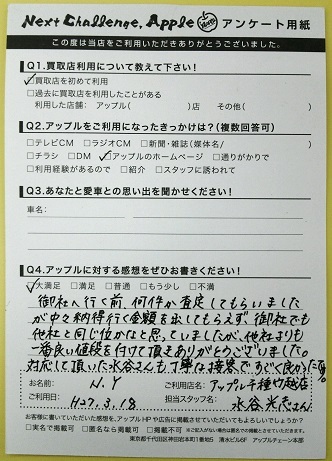 Next Challenge. Apple アンケート用紙
この度は当店をご利用いただきありがとうございました。
Q1.買取店利用について教えて下さい!
☑買取店を初めて利用
□過去に買取店を利用したことがある
利用した店舗: アップル( )店 その他( )
Q2.アップルをご利用になったきっかけは?(複数回答可)
□テレビCM □ラジオCM □新聞・雑誌(媒体名/ )
□チラシ □DM ☑アップルのホームページ □通りがかりで
□利用経験があるので □紹介 □スタッフに誘われて
Q3.あなたと愛車との思い出を聞かせください!
車名:
Q4.アップルに対する感想をぜひお書きください!
☑大満足 □満足 □普通 □もう少し □不満
御社へ行く前、何件か査定してもらいました
が中々納得行く金額を出してもらえず、御社でも
他社と同じ位かなと思っていましたが、他社よりも
一番良い値段を付けて頂きありがとうございました。
対応して頂いた水谷さんも丁寧な接客で、すごく良かったです。
お名前 N.Y ご利用店名: アップル千種竹越店
ご利用日: H27.3.18 担当スタッフ名: 水谷 さん
お客様に書いていただいた感想を、アップルHPや広告に掲載させていただいてもよろしいでしょうか?
□実名で掲載可 □匿名なら掲載可 □掲載不可
東京都千代田区神田松本町1番地5 清水ビル6F アップルチェーン本部